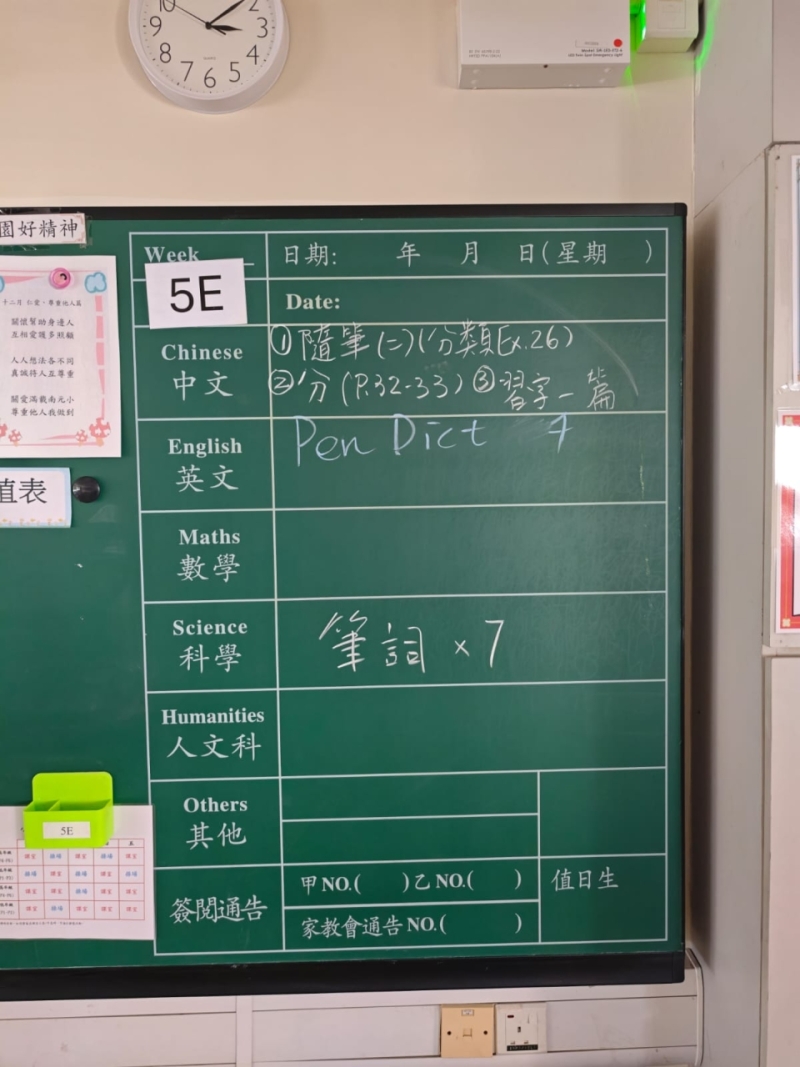 2
10
3
9
4
8
5
7
6
園好精神
十二月 仁愛、尊重他人篇
關懷幫助身邊人
互相愛護多照顧
人人想法各不同
真誠待人且尊重
關愛滿載南元小
尊重他人我做到
值表
5E
Week
5E
日期: 年 月 日(星期 )
Date:
Chinese
中文
①隨筆(二)(分類Ex.26)
②分(P.32-33) ③習字一篇
English
英文
Pen Dict 7
Maths
數學
Science
科學
筆詞 x 7
Humanities
人文科
Others
其他
簽閱通告
甲NO.( )乙NO.( )
家教會通告NO.( )
值日生